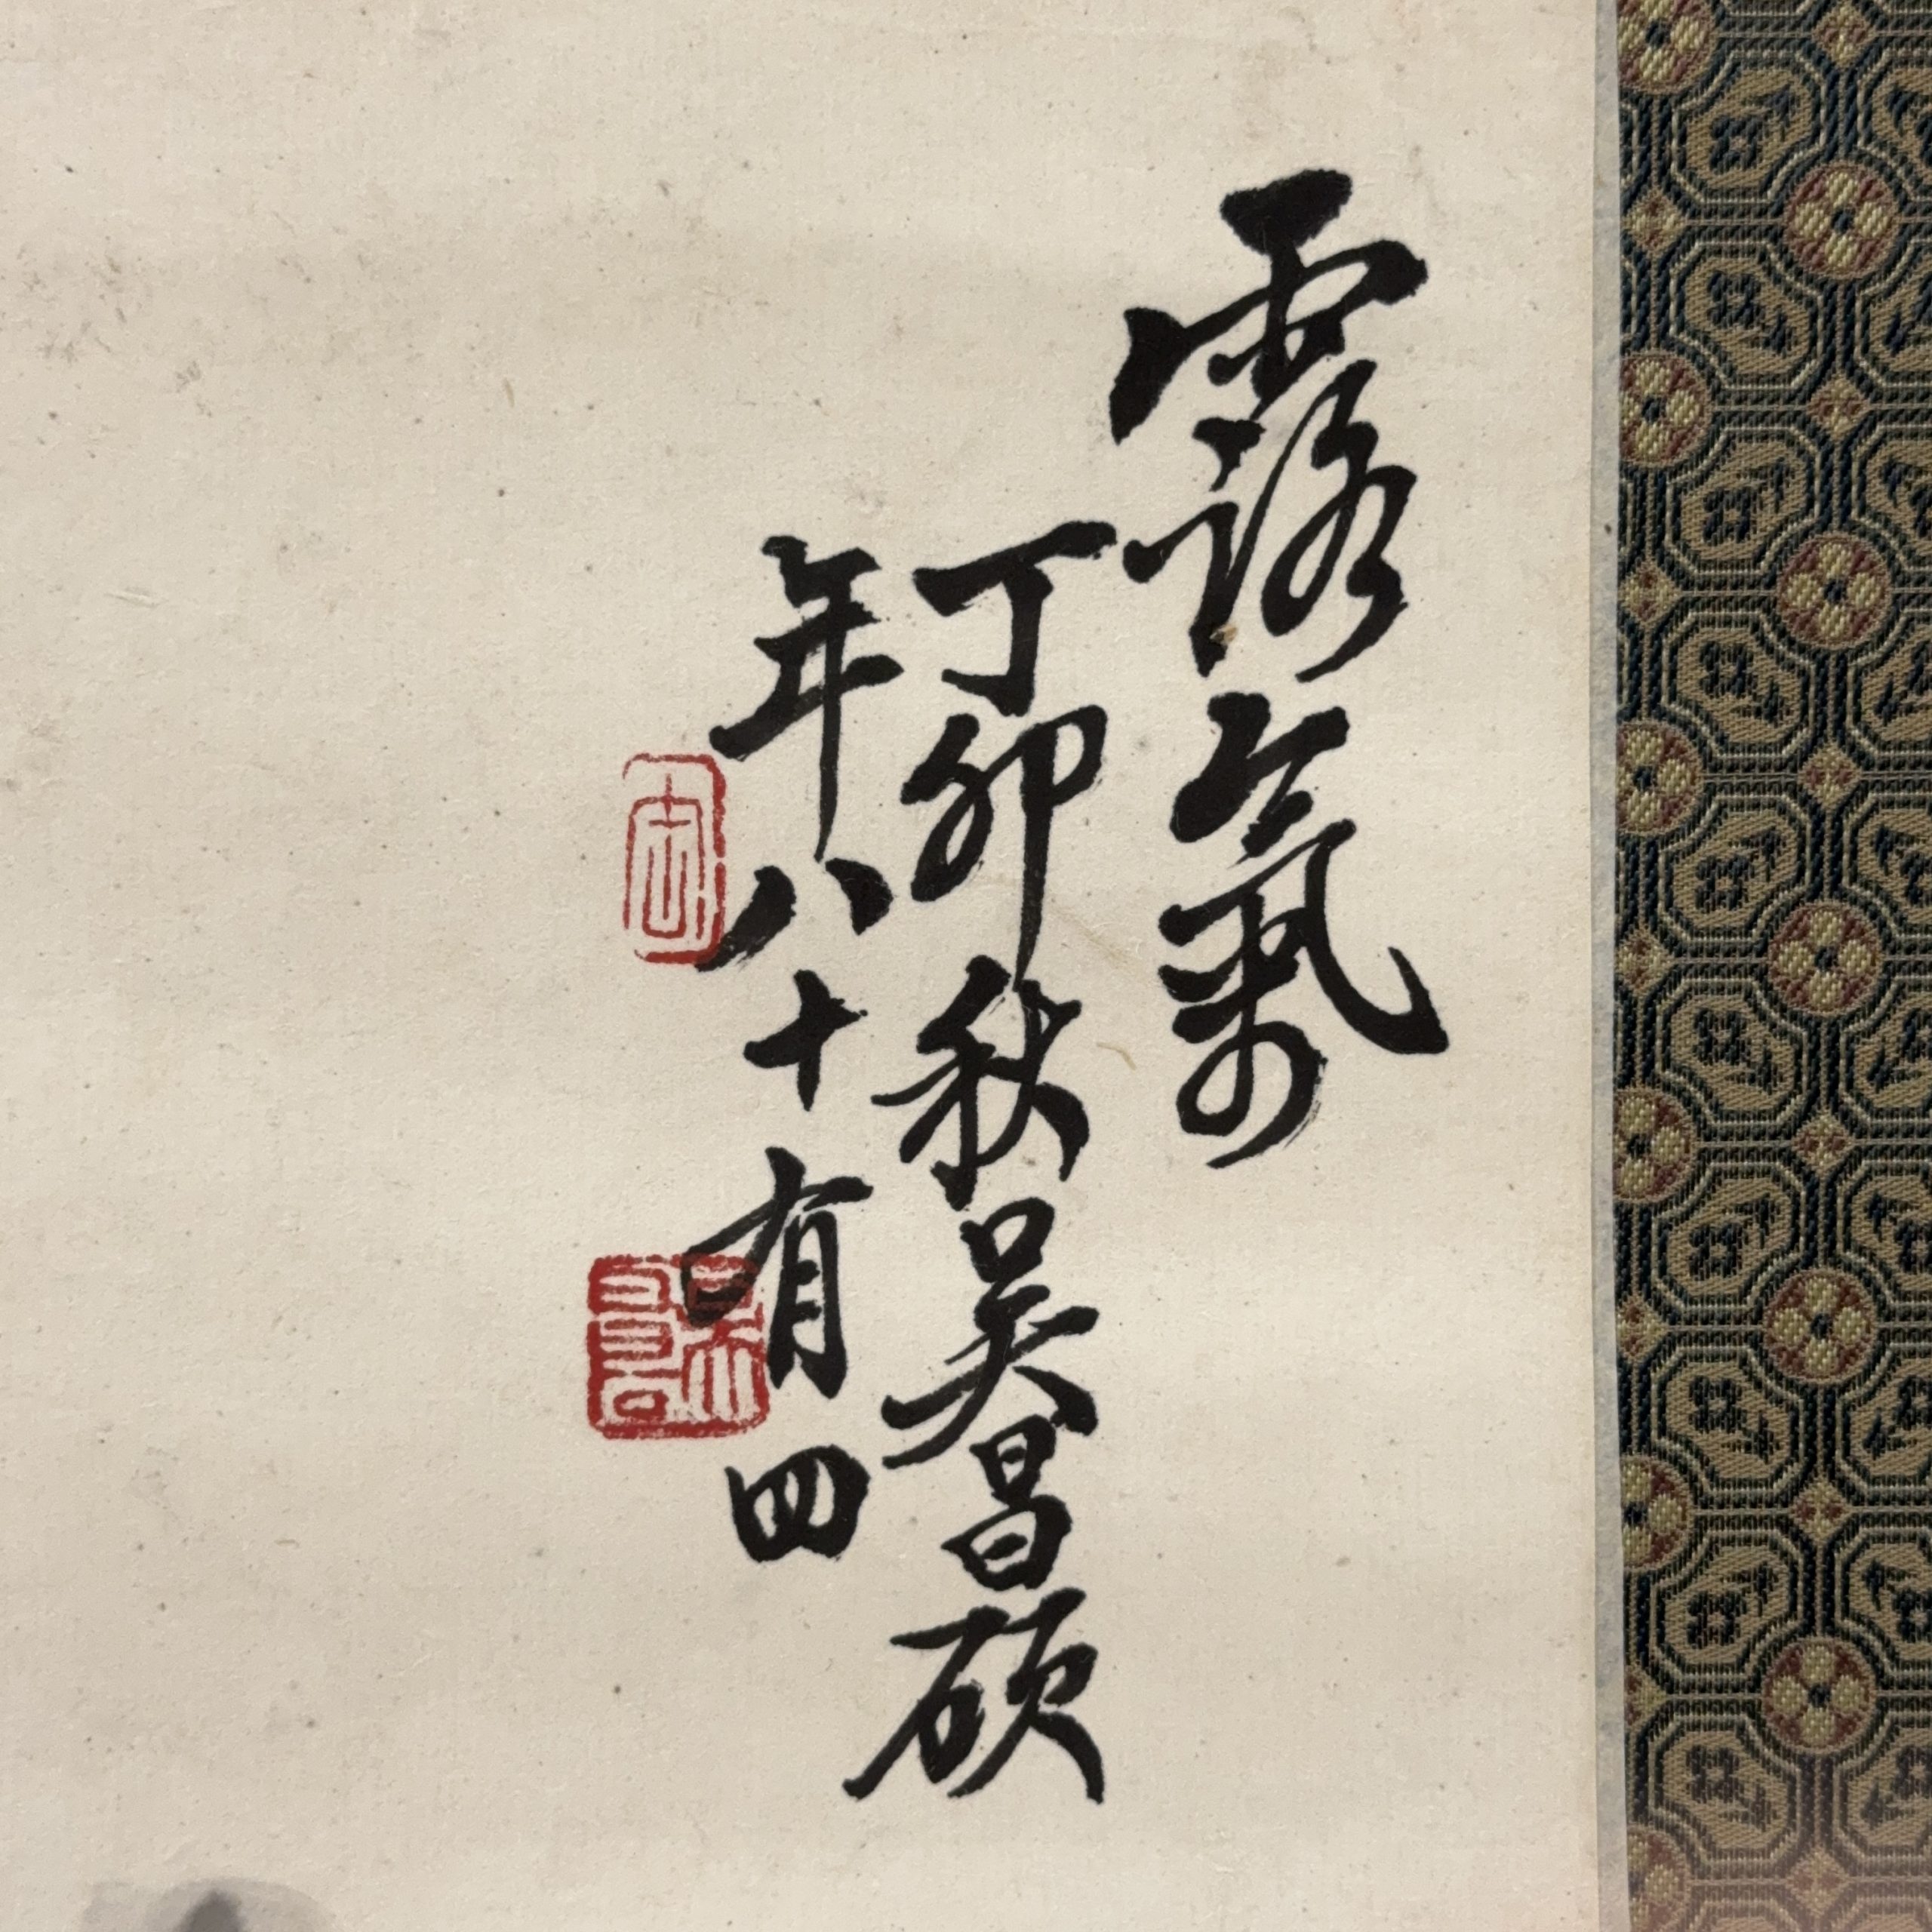 露氣
丁卯秋吳昌碩
年八十有四